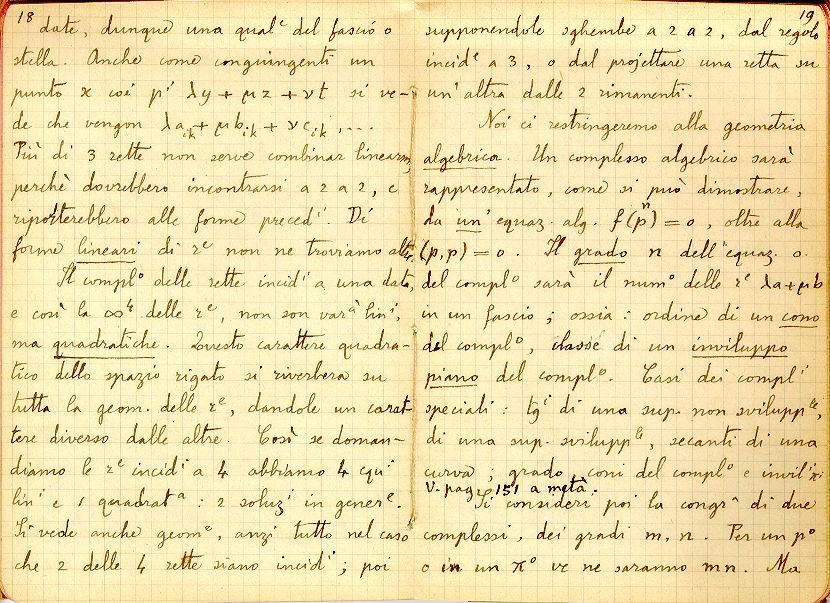 18
date, dunque una qualᵉ del fascio o
stella. Anche come congiungenti un
punto x coi pⁱ λy + μz + νt si ve-
de che vengon λa_ik + μb_ik + νc_ik, ...
Più di 3 rette non serve combinar linearm,
perchè dovrebbero incontrarsi a 2 a 2, e
riporterebbero alle forme precedⁱ. Di
forme lineari di rᵉ non ne troviamo altre
Il complᵒ delle rette incidⁱ a una data,
e così la ∞⁴ delle rᵉ, non son varᵃ linⁱ,
ma quadratiche. Questo carattere quadra-
tico dello spazio rigato si riverbera su
tutta la geom. delle rᵉ, dandole un carat-
tere diverso dalle altre. Così se doman-
diamo le rᵉ incidⁱ a 4 abbiamo 4 eqⁱ
linⁱ e 1 quadratᵃ : 2 soluzⁱ in generᵉ.
Si vede anche geomᵉ, anzi tutto nel caso
che 2 delle 4 rette siano incidⁱ; poi
19
supponendole sghembe a 2 a 2, dal regolo
incidᵉ a 3, o dal projettare una retta su
un'altra dalle 2 rimanenti.
Noi ci restringeremo alla geometria
algebrica. Un complesso algebrico sarà
rappresentato, come si può dimostrare,
da un' equaz. alg. f(pⁿ) = 0, oltre alla
(p,p) = 0. Il grado n dell'equaz. o
del complᵒ sarà il numᵒ delle rᵉ λa + μb
in un fascio; ossia: ordine di un cono
del complᵒ, classe di un inviluppo
piano del complᵒ. Casi dei complⁱ
speciali: tgⁱ di una sup. non sviluppˡᵉ,
di una sup. sviluppˡᵉ, secanti di una
curva; grado, coni del complᵒ e invilⁱ πⁱ
V. pag. 151 a metà.
Si consideri poi la congrᵃ di due
complessi, dei gradi m, n. Per un pᵒ
o in un πᵒ ve ne saranno mn. Ma